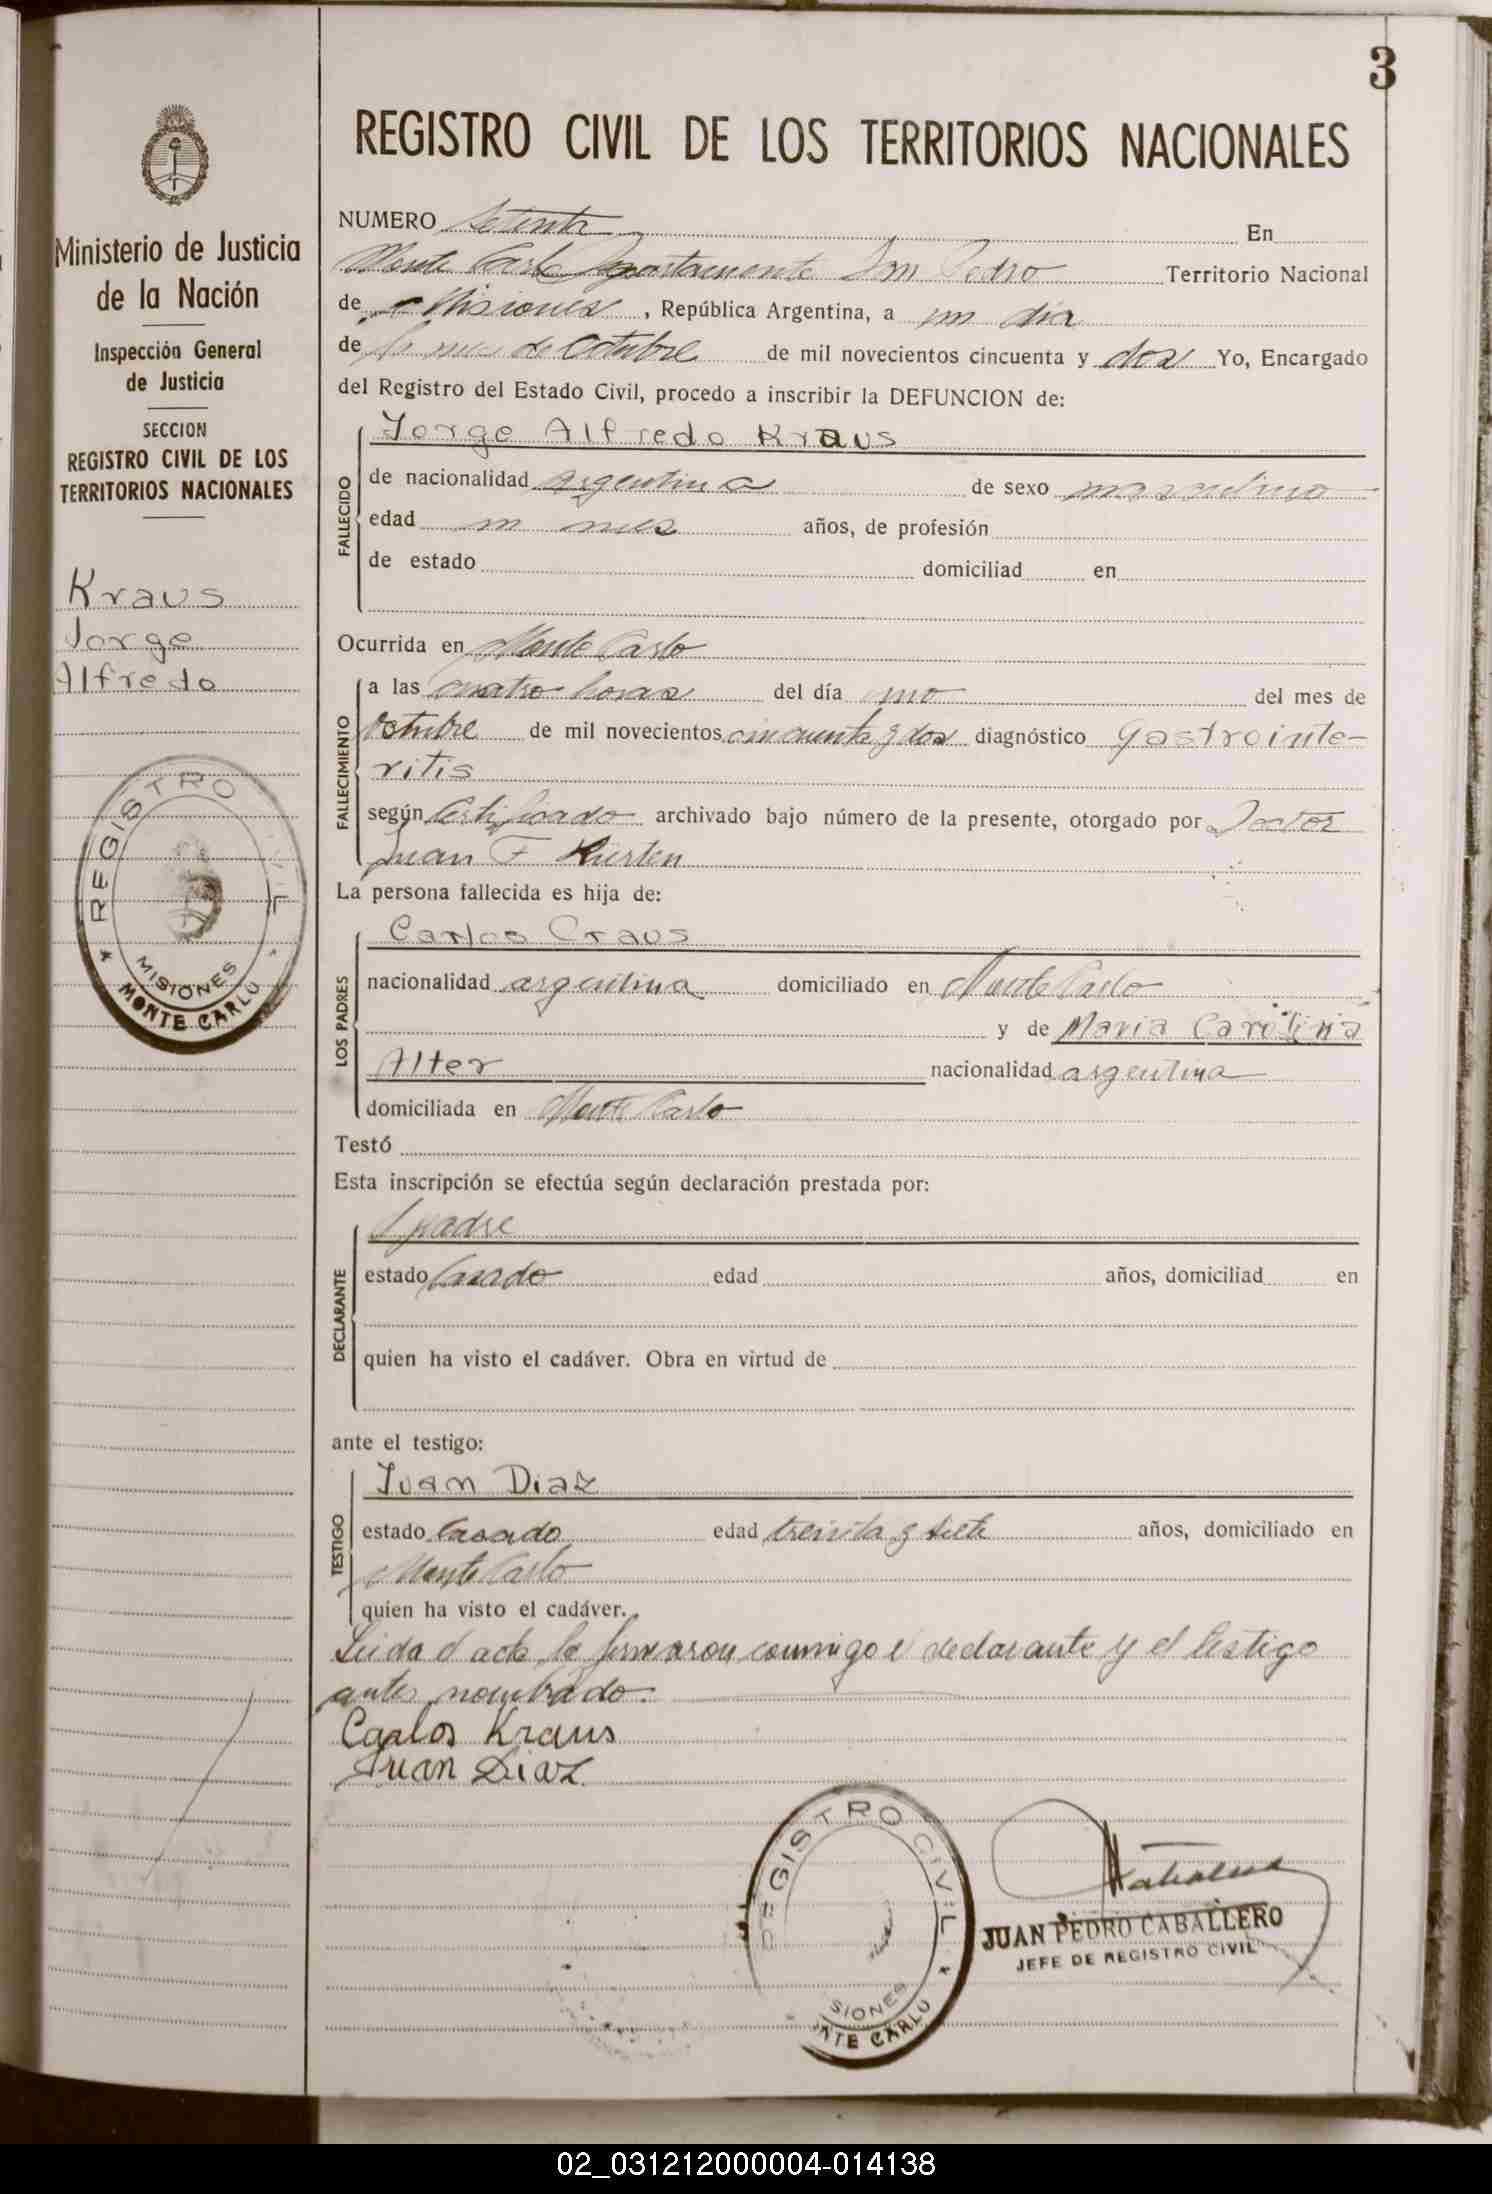 3
REGISTRO CIVIL DE LOS TERRITORIOS NACIONALES
Ministerio de Justicia
de la Nación
Inspección General
de Justicia
SECCION
REGISTRO CIVIL DE LOS
TERRITORIOS NACIONALES
Kraus
Jorge
Alfredo
REGISTRO CIVIL
MISIONES
MONTE CARLO
NUMERO Setenta En
Monte Carlo Departamento San Pedro Territorio Nacional
de Misiones, República Argentina, a un día
de mes de Octubre de mil novecientos cincuenta y dos Yo, Encargado
del Registro del Estado Civil, procedo a inscribir la DEFUNCION de:
FALLECIDO
Jorge Alfredo Kraus
de nacionalidad argentina de sexo masculino
edad un mes años, de profesión
de estado domiciliad en
Ocurrida en Monte Carlo
FALLECIMIENTO
a las cuatro horas del día uno del mes de
Octubre de mil novecientos cincuenta y dos diagnóstico Gastrointe-
ritis
según Certificado archivado bajo número de la presente, otorgado por Doctor
Juan F Kürten
La persona fallecida es hija de:
LOS PADRES
Carlos Craus
nacionalidad argentina domiciliado en Monte Carlo
y de Maria Carolina
Alter nacionalidad argentina
domiciliada en Monte Carlo
Testó
Esta inscripción se efectúa según declaración prestada por:
DECLARANTE
padre
estado Casado edad años, domiciliad en
quien ha visto el cadáver. Obra en virtud de
ante el testigo:
TESTIGO
Juan Diaz
estado Casado edad treinta y siete años, domiciliado en
Monte Carlo
quien ha visto el cadáver.
Leida el acta la firmaron conmigo el declarante y el testigo
antes nombrado.
Carlos Kraus
Juan Diaz
REGISTRO CIVIL
SIONES
NTE CARLO
JUAN PEDRO CABALLERO
JEFE DE REGISTRO CIVIL
02_031212000004-014138